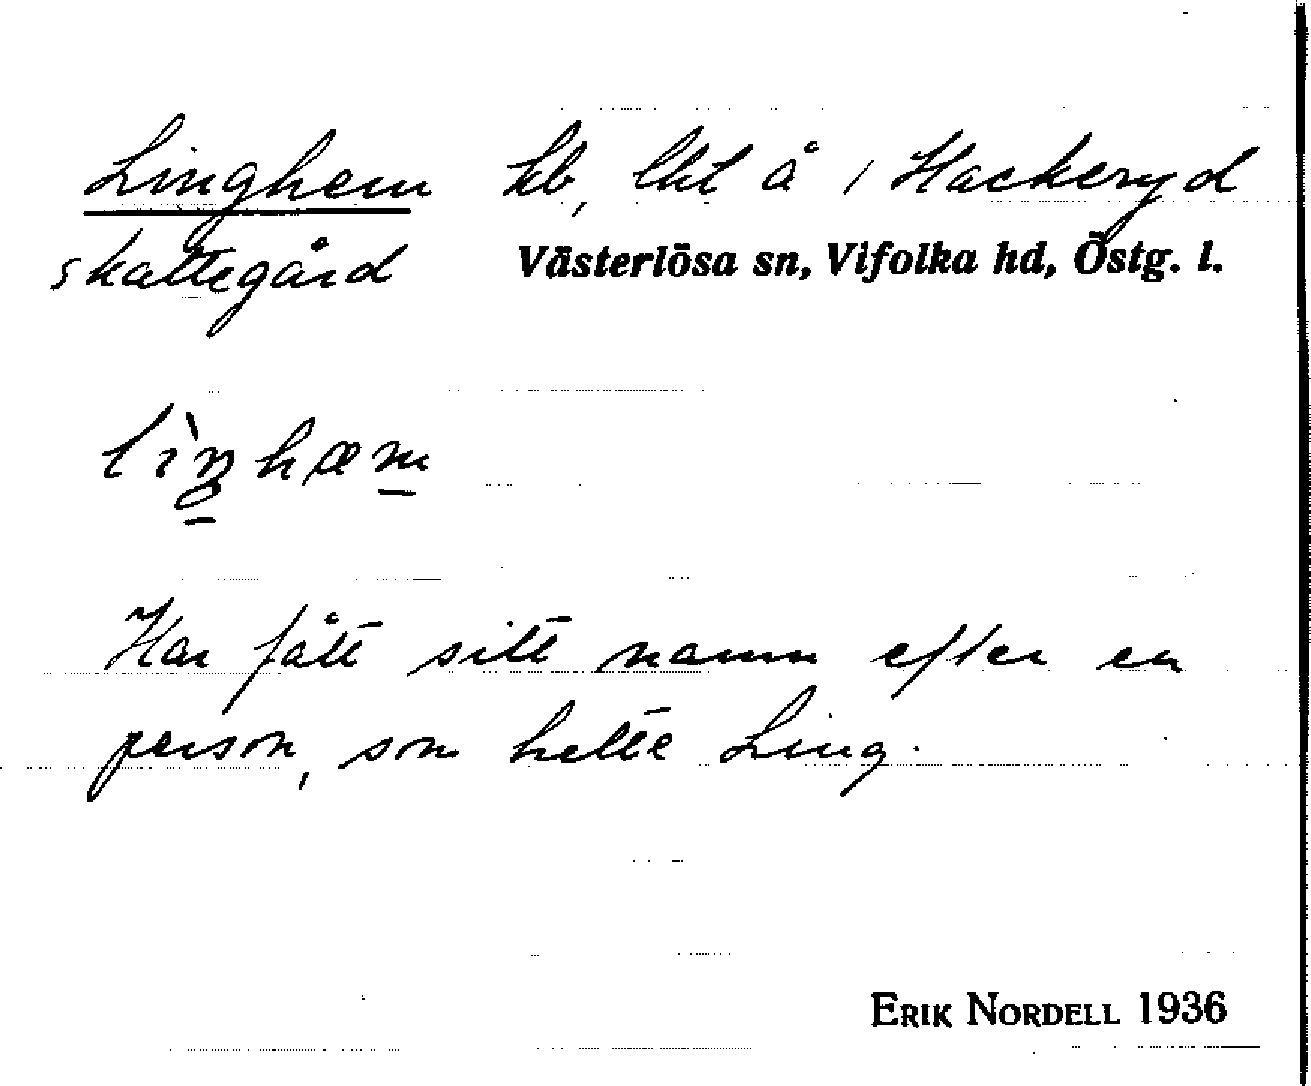 Linghem hb, lht å 1 Hackeryd
skattegård Västerlösa sn, Vifolka hd, Östg. l.
lìŋhæm
Har fått sitt namn efter en
person, som hette Ling.
ERIK NORDELL 1936